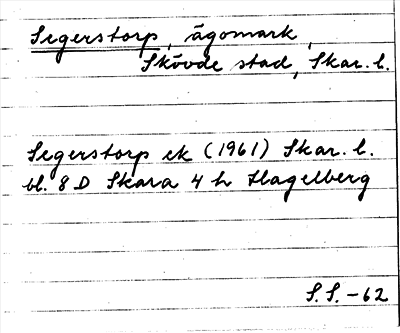 Segerstorp, ägomark,
Skövde stad, Skar. l.
Segerstorp ek (1961) Skar. l.
bl. 8 D Skara 4 h Hagelberg
S.S. -62